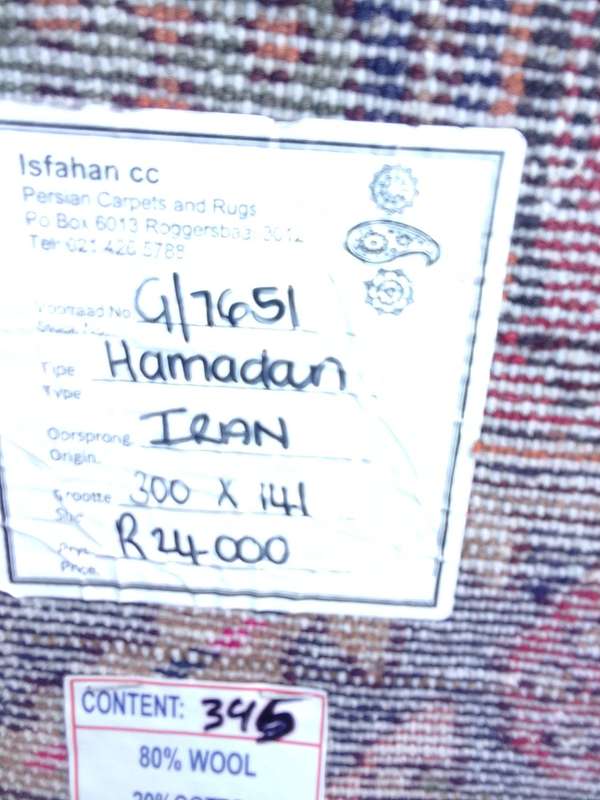 Isfahan cc
Persian Carpets and Rugs
Po Box 6013 Roggersbaai 8012
Tel: 021 426 5788
Voorraad No G/7651
Tipe Hamadan
Type
Oorsprong IRAN
Origin
Grootte 300 X 141
Size
Prys R24-000
Price
CONTENT: 345
80% WOOL